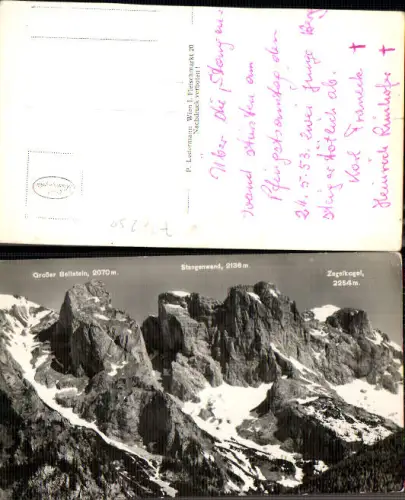 P. Ledermann, Wien I, Fleischmarkt 20
Nachdruck verboten!
Über die Stangen-
wand stürzten am
Pfingstsonntag den
24.5.53. zwei junge Berg
steiger tötlich ab.
Karl †
Heinrich †
Großer Beilstein, 2070 m
Stangenwand, 2136 m
Zagelkogel,
2254 m.